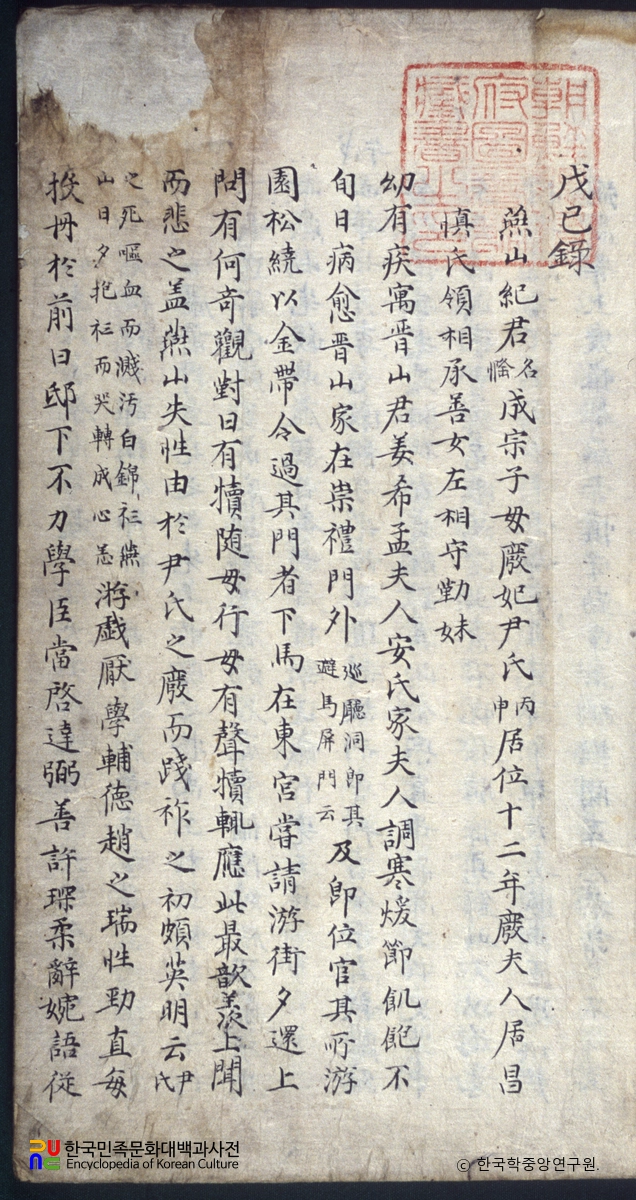 戊已錄
燕山 紀君 名㦕 成宗子 母廢妃尹氏 丙申 居位十二年 廢 夫人居昌
愼氏領相承善女左相守勤妹
幼有疾寓晋山君姜希孟夫人安氏家夫人調寒煖節飢飽不
旬日病愈晋山家在崇禮門外 巡廳洞卽其避馬屏門云 及卽位官其所游
園松繞以金帶令過其門者下馬在東宮嘗請游街夕還上
問有何奇觀對曰有犢隨母行母有聲犢輒應此最歆羡上聞
而悲之盖燕山失性由於尹氏之廢而踐祚之初頗英明云 尹氏
之死嘔血而濺汚白錦衫燕山日夕抱衫而哭轉成心恙 游戱厭學輔德趙之瑞性勁直每
投冊於前曰邸下不力學臣當啓達弼善許琛柔辭婉語從
朝鮮
府圖書
藏書之印
한국민족문화대백과사전
Encyclopedia of Korean Culture
© 한국학중앙연구원.